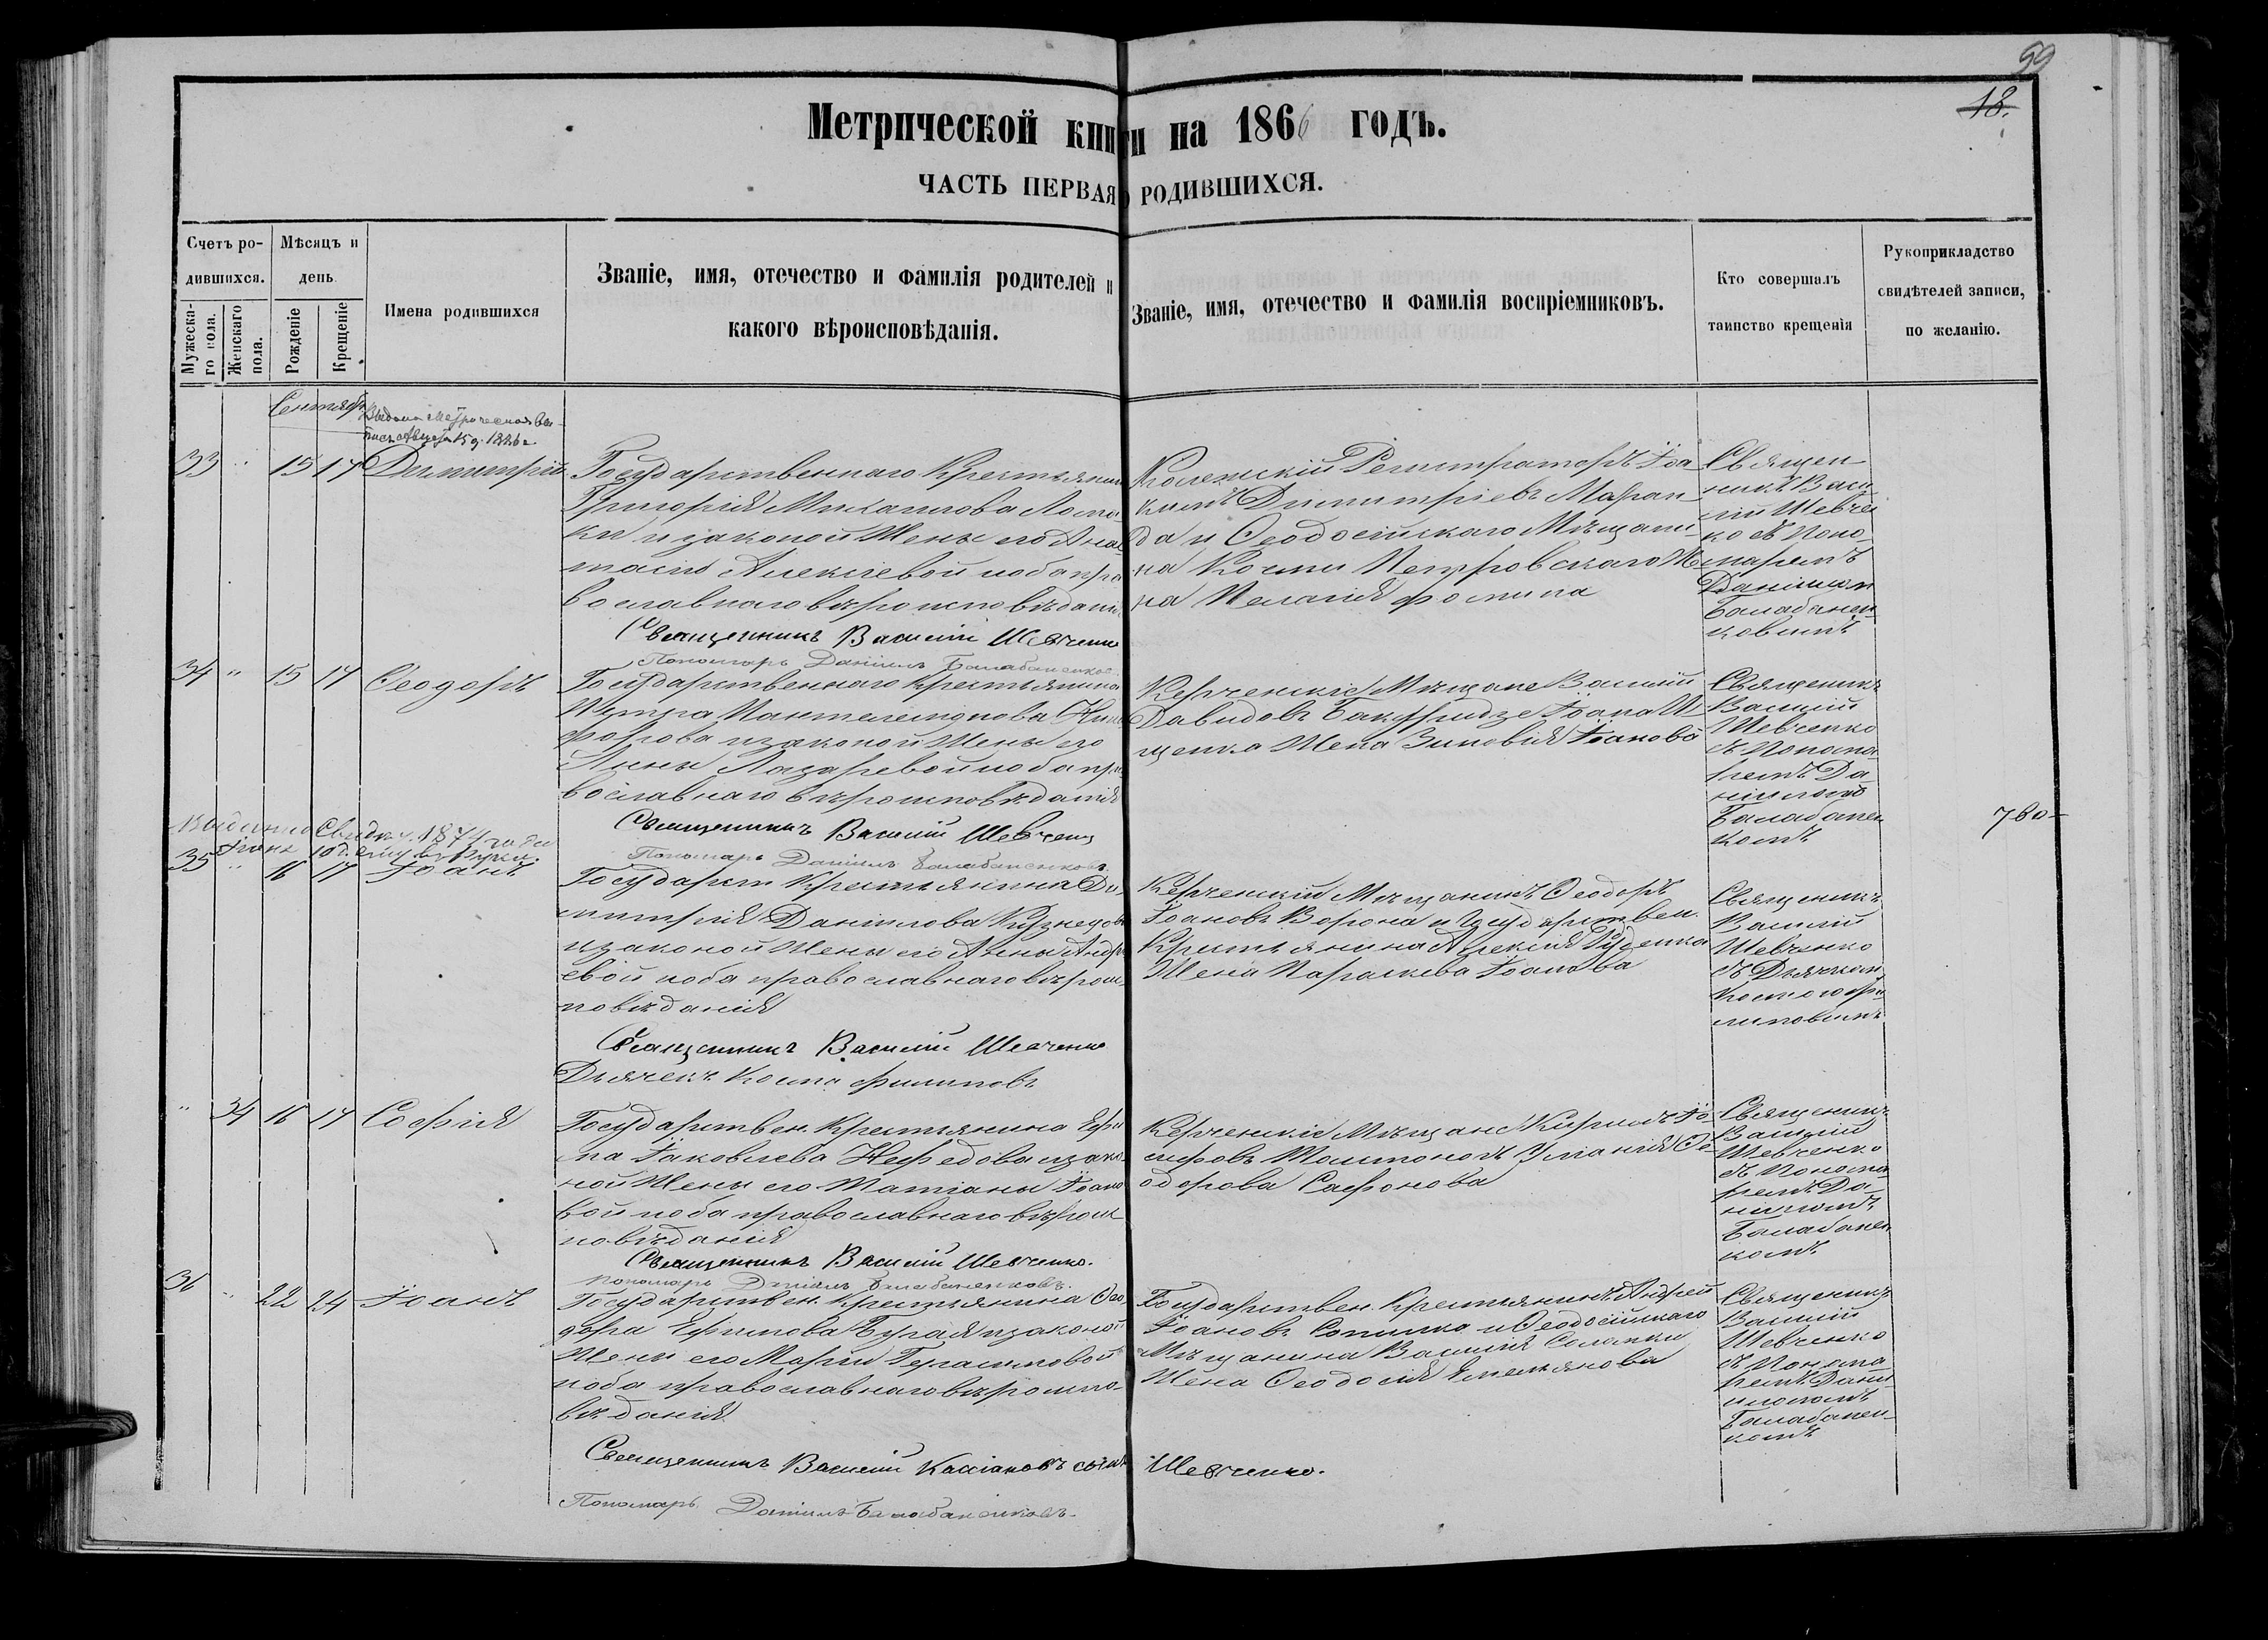 99
18.
Метрической книги на 1866 годъ.
ЧАСТЬ ПЕРВАЯ О РОДИВШИХСЯ.
Счетъ ро-
дившихся.
Мужеска-
го пола.
Женскаго
пола.
Мѣсяцъ и
день
Рожденіе
Крещеніе
Имена родившихся
Званіе, имя, отечество и фамилія родителей и
какого вѣроисповѣданія.
Званіе, имя, отечество и фамилія воспріемниковъ.
Кто совершалъ
таинство крещенія
Рукоприкладство
свидѣтелей записи,
по желанію.
Сентябрь
Выдана Метрическая вы-
пись
33 " 15 17 Димитрій
Государственнаго Крестьянина
Григорія Михаилова
и законой Жены его Анас-
тасіи Алексіевой оба пра
вославнаго вѣроисповѣданія
Священникъ Василій Шевченко
Пономарь Даніилъ Балабаненковъ
Колежскій Регистраторъ Іоа
кимъ Димитріевъ Маран
да и Феодосійскаго Мѣщани-
на Космы Петровскаго Же
на Пелагія Фомина
Священ
никъ Васи
лій Шевчен
ко съ Поно-
маремъ
Даніиломъ
Балабанен
ковымъ
34 " 15 17 Феодоръ
Государственнаго Крестьянина
Петра Пантелеимонова Ники
форова и законой Жены его
Анны Лазаревой оба пра
вославнаго вѣроисповѣданія
Священникъ Василій Шевченко
Пономарь Даніилъ Балабаненковъ
Керченскіе Мѣщане Василій
Давидовъ Іоана И
щенка Жена Зиновія Іоакова
Священикъ
Василій
Шевченко
съ Понома
ремъ Да
ніиломъ
Балабанен
комъ
780
Выдано Свид. 1874 года
Іюня 10 д. ему въ руки.
35 " 16 17 Іоанъ
Государств Крестьянина Ди
митрія Даніилова Кузнецова
и законой Жены его Анны Андре
евой оба православнаго вѣроис
повѣданія
Священникъ Василій Шевченко
Дьячекъ Косма Филиповъ
Керченскій Мѣщанинъ Феодоръ
Іоановъ Ворона и Государствен.
Крестьянина Алексія Руденка
Жена Параскева Іоанова
Священикъ
Василій
Шевченко
съ Дьячком
Космою Фи
липовымъ
" 34 16 17 Софія
Государствен. Крестьянина Ефи
ма Іаковлева Нефедова и зако
ной Жены его Татіаны Іоано
вой оба православнаго вѣроис
повѣданія
Священникъ Василій Шевченко.
Пономарь Даніилъ Балабаненковъ.
Керченскіе Мѣщане Кирилъ Іо
сифовъ Уліанія Фе
одорова Сафонова
Священикъ
Василій
Шевченко
съ Понома
ремъ Да
ніиломъ
Балабанен
комъ
36 " 22 24 Іоанъ
Государствен. Крестьянина Фео
дора Ефимова Бугая и законой
Жены его Маріи Герасимовой
оба православнаго вѣроиспо-
вѣданія
Священникъ Василій Кассіановъ сынъ Шевченко.
Пономарь Даніилъ Балабаненковъ.
Государствен. Крестьянинъ Андрей
Іоановъ Сопилко и Феодосійскаго
Мѣщанина Василія
Жена Феодосія Емельянова
Священикъ
Василій
Шевченко
съ Понома
ремъ Дані
иломъ
Балабанен
комъ